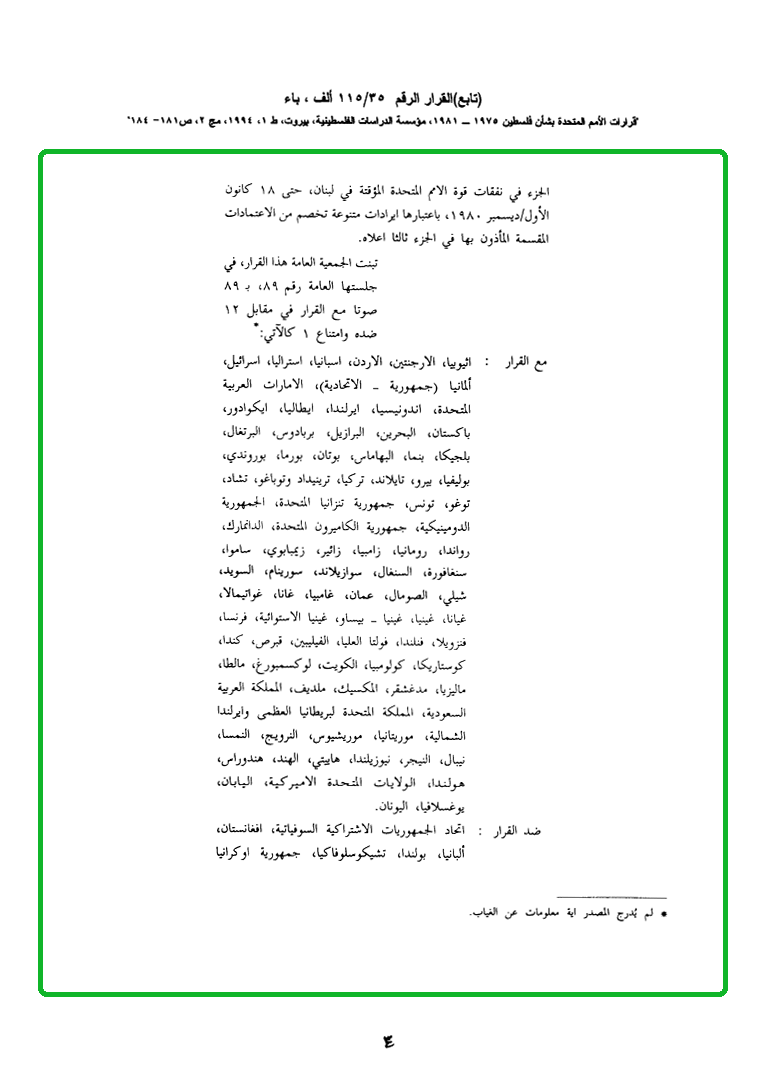 (تابع)القرار الرقم ١١٥/٣٥ ألف ، باء
"قرارات الأمم المتحدة بشأن فلسطين ١٩٧٥ ــ ١٩٨١، مؤسسة الدراسات الفلسطينية، بيروت، ط ١، ١٩٩٤، مج ٢، ص١٨١- ١٨٤"
الجزء في نفقات قوة الامم المتحدة المؤقتة في لبنان، حتى ١٨ كانون
الأول/ديسمبر ١٩٨٠، باعتبارها ايرادات متنوعة تخصم من الاعتمادات
المقسمة المأذون بها في الجزء ثالثا اعلاه.
تبنت الجمعية العامة هذا القرار، في
جلستها العامة رقم ٨٩، بـ ٨٩
صوتا مع القرار في مقابل ١٢
ضده وامتناع ١ كالآتي:*
مع القرار : اثيوبيا، الارجنتين، الاردن، اسبانيا، استراليا، اسرائيل،
ألمانيا (جمهورية ــ الاتحادية)، الامارات العربية
المتحدة، اندونيسيا، ايرلندا، ايطاليا، ايكوادور،
باكستان، البحرين، البرازيل، بربادوس، البرتغال،
بلجيكا، بنما، البهاماس، بوتان، بورما، بوروندي،
بوليفيا، بيرو، تايلاند، تركيا، ترينيداد وتوباغو، تشاد،
توغو، تونس، جمهورية تنزانيا المتحدة، الجمهورية
الدومينيكية، جمهورية الكاميرون المتحدة، الدانمارك،
رواندا، رومانيا، زامبيا، زائير، زيمبابوي، ساموا،
سنغافورة، السنغال، سوازيلاند، سورينام، السويد،
شيلي، الصومال، عمان، غامبيا، غانا، غواتيمالا،
غيانا، غينيا، غينيا ــ بيساو، غينيا الاستوائية، فرنسا،
فنزويلا، فنلندا، فولتا العليا، الفيليبين، قبرص، كندا،
كوستاريكا، كولومبيا، الكويت، لوكسمبورغ، مالطا،
ماليزيا، مدغشقر، المكسيك، ملديف، المملكة العربية
السعودية، المملكة المتحدة لبريطانيا العظمى وايرلندا
الشمالية، موريتانيا، موريشيوس، النرويج، النمسا،
نيبال، النيجر، نيوزيلندا، هاييتي، الهند، هندوراس،
هولندا، الولايات المتحدة الاميركية، اليابان،
يوغسلافيا، اليونان.
ضد القرار : اتحاد الجمهوريات الاشتراكية السوفياتية، افغانستان،
ألبانيا، بولندا، تشيكوسلوفاكيا، جمهورية اوكرانيا
* لم يُدرج المصدر اية معلومات عن الغياب.
٤